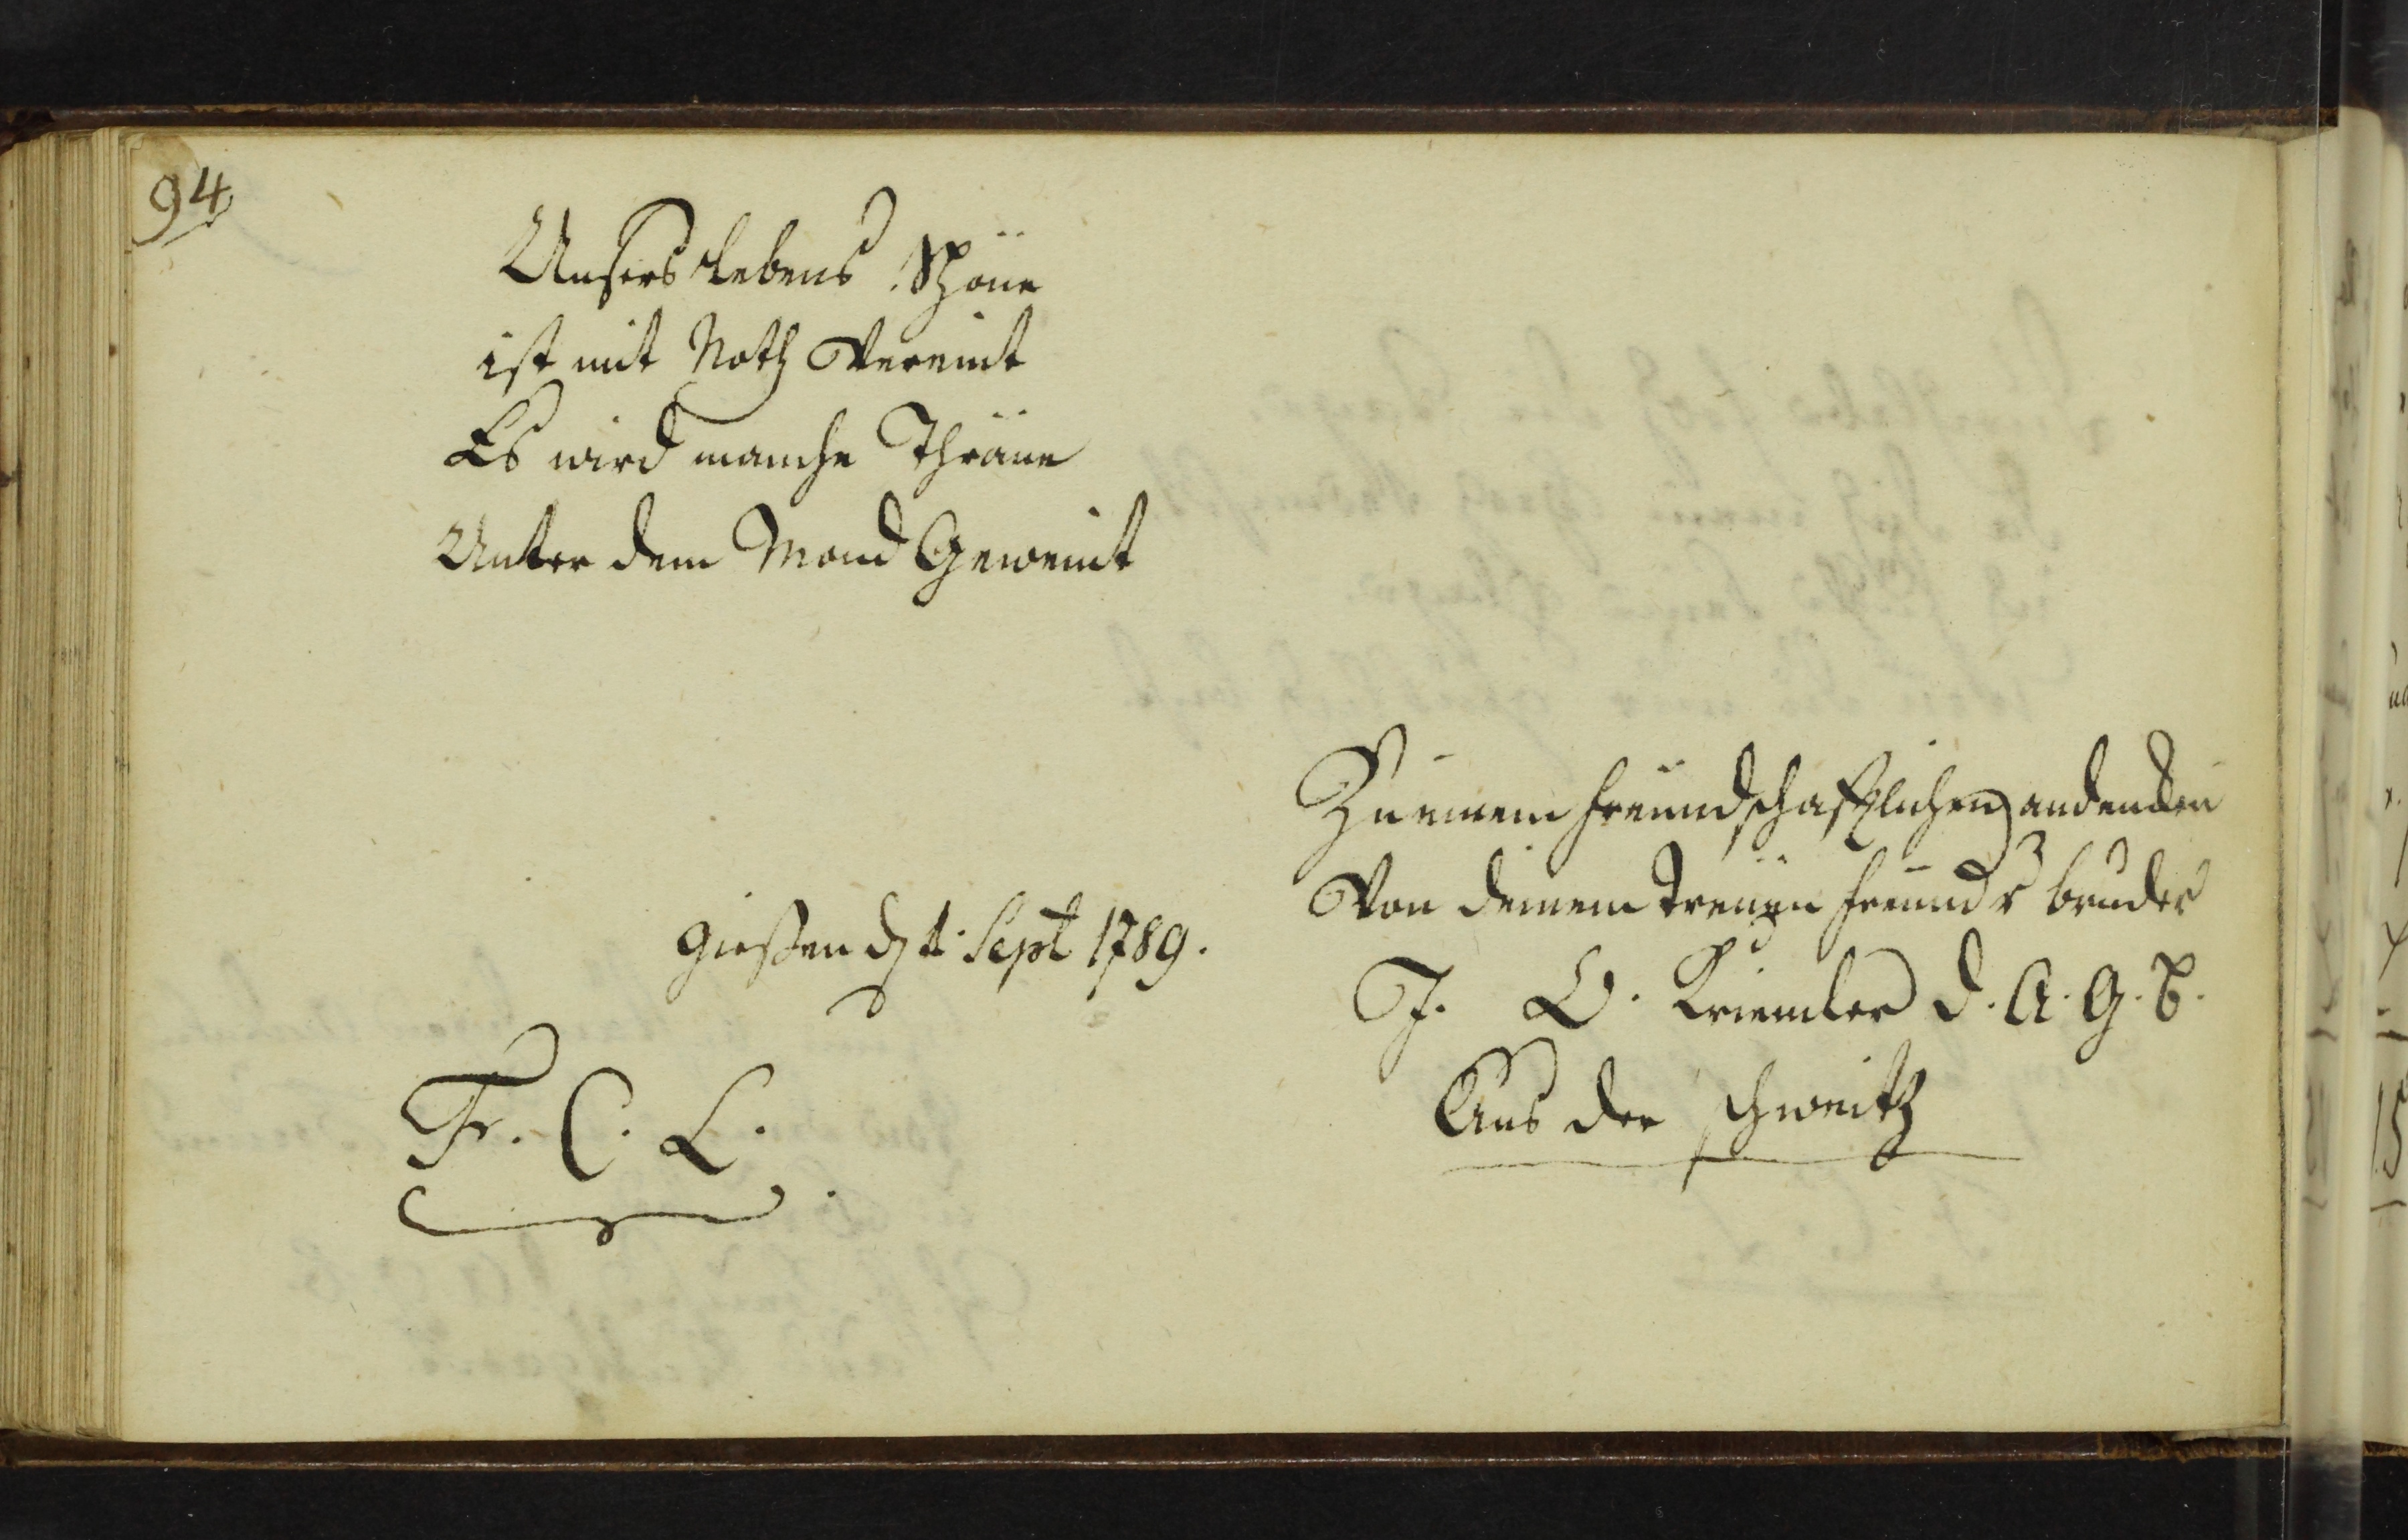 94
Unsers lebens Schöne
ist mit Noth Vereint
Es wird manche Thräne
Unter dem Mond Geweint
Zu einem freundschaftlichen andencken
Von deinem treuen freund & bruder
Gießen d 1. Sept 1789.
J. U. Kriemler d. A. G. B.
Aus der schweitz
Fr. C. L.